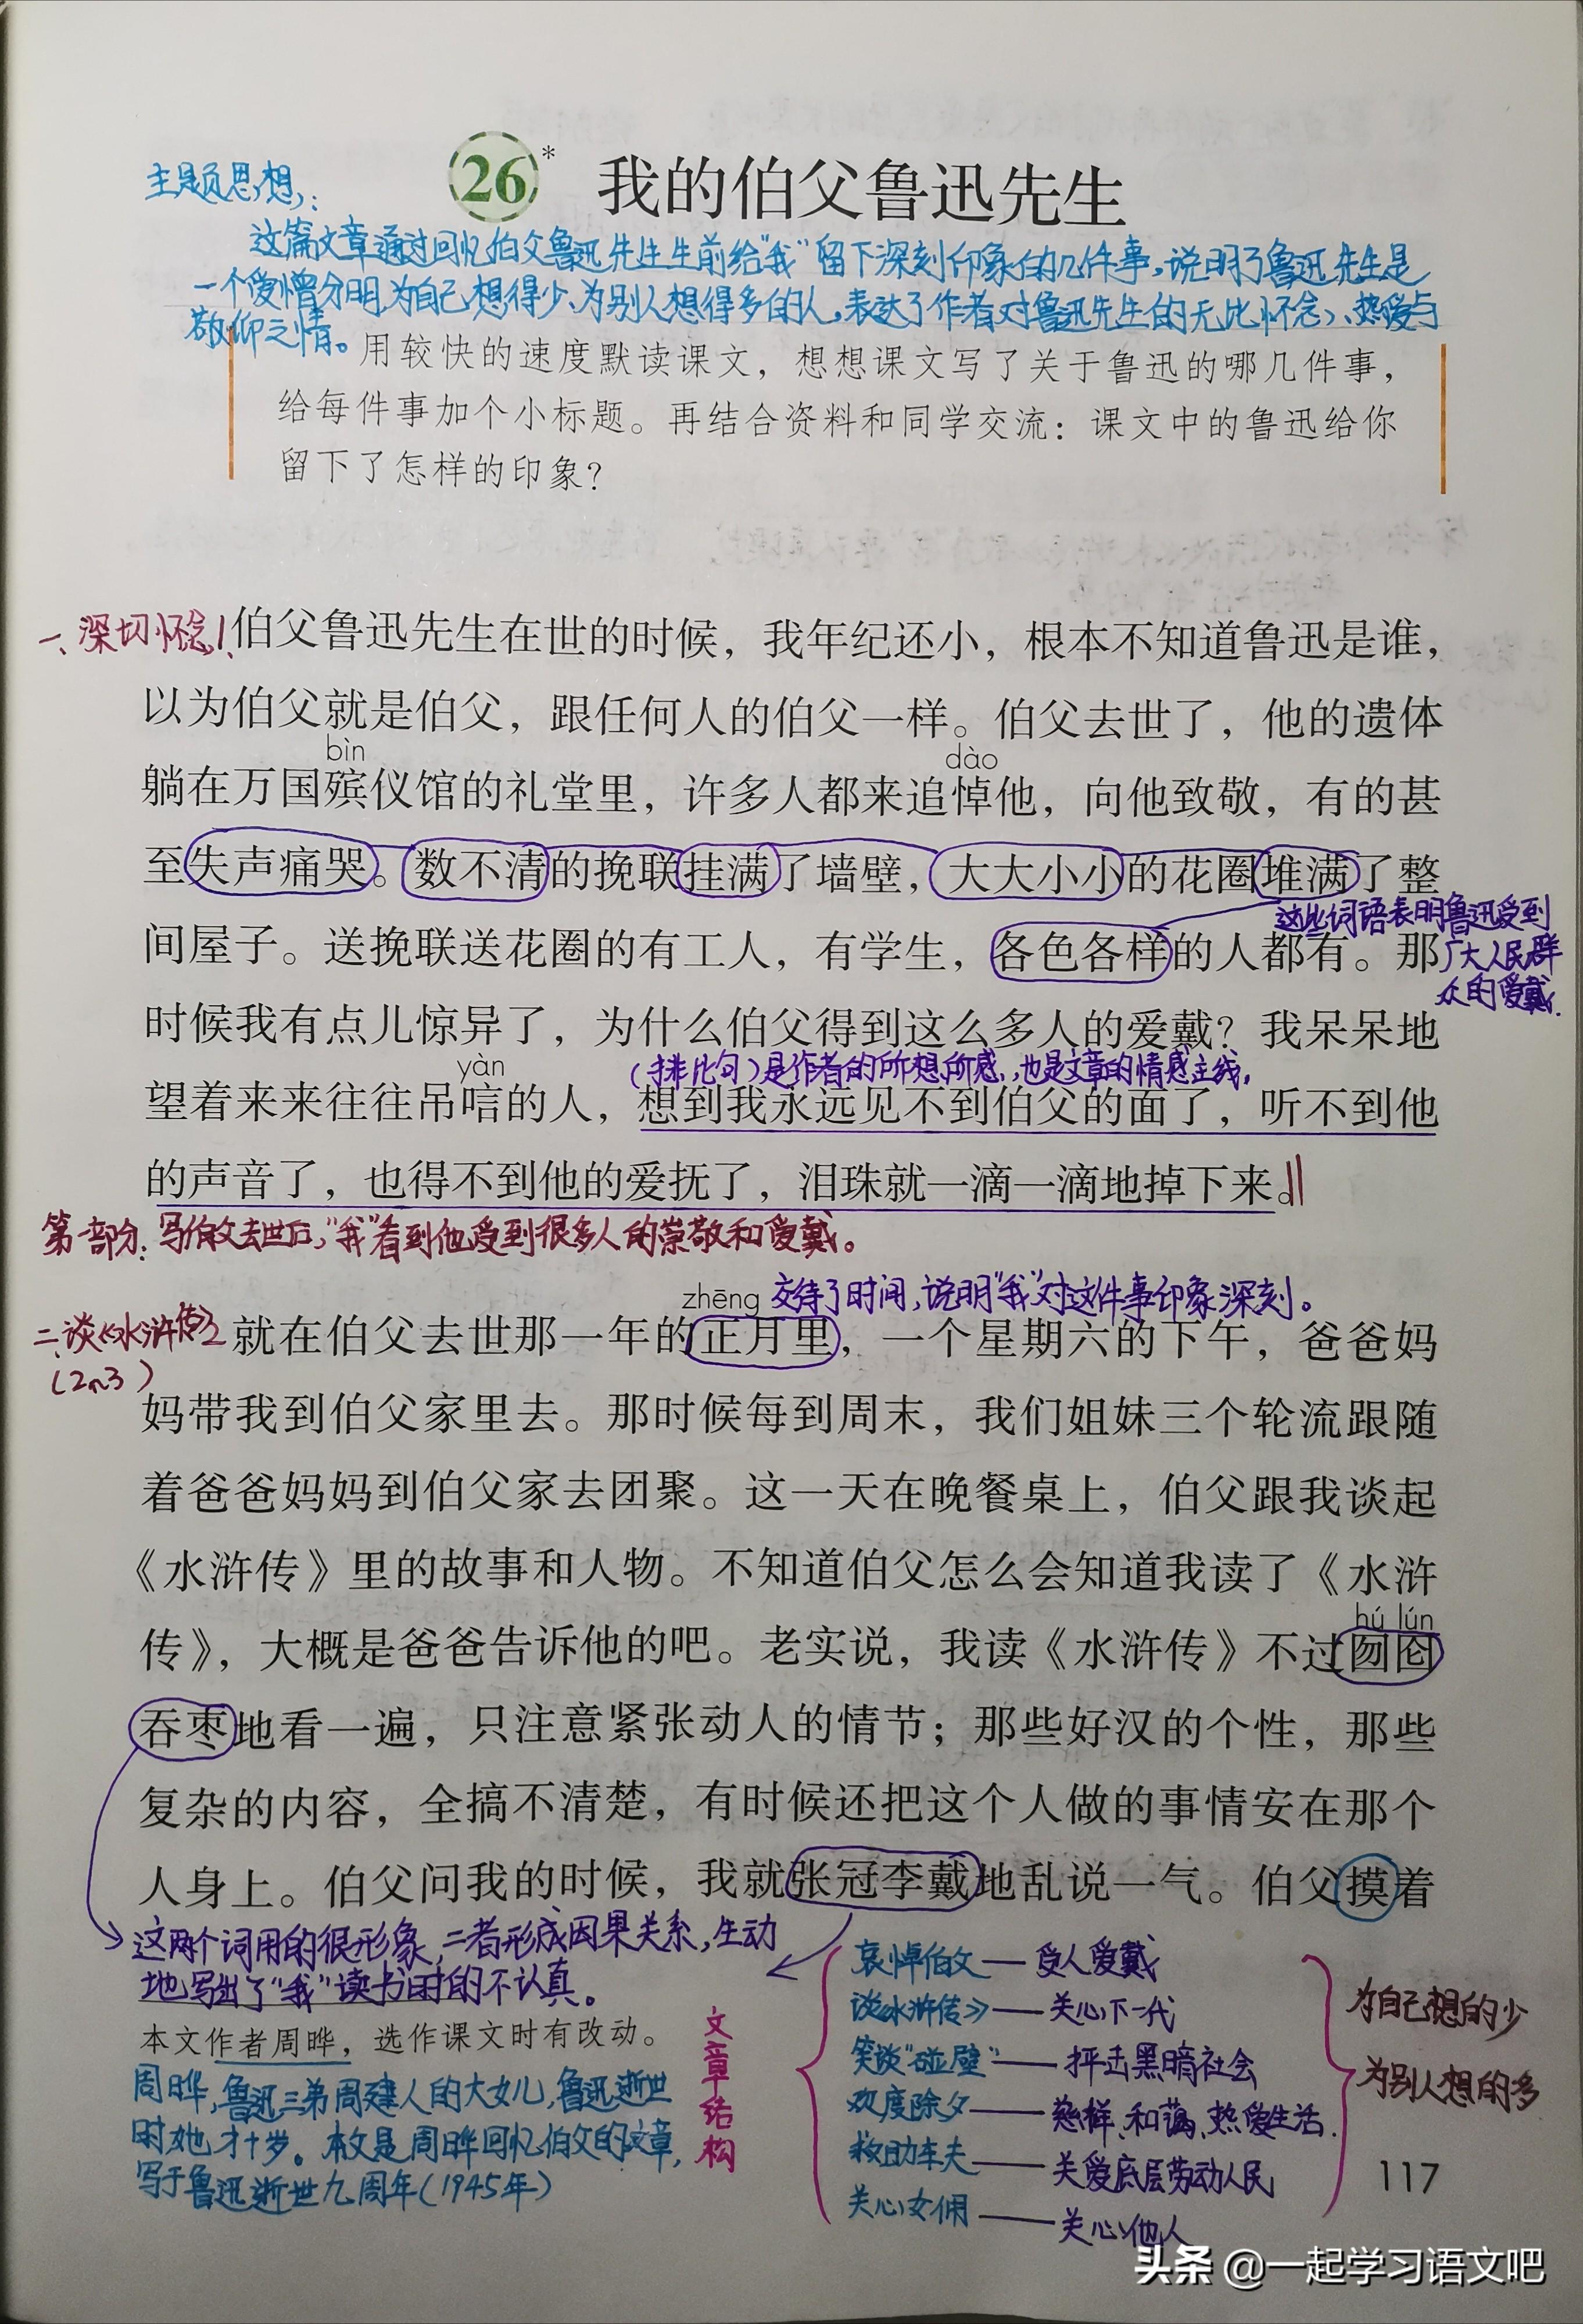 26* 我的伯父鲁迅先生
主题思想:
这篇文章通过回忆伯父鲁迅先生生前给“我”留下深刻印象的几件事,说明了鲁迅先生是
一个爱憎分明,为自己想得少、为别人想得多的人,表达了作者对鲁迅先生的无比怀念、热爱与
敬仰之情。
用较快的速度默读课文，想想课文写了关于鲁迅的哪几件事，
给每件事加个小标题。再结合资料和同学交流：课文中的鲁迅给你
留下了怎样的印象？
一、深切怀念1、
伯父鲁迅先生在世的时候，我年纪还小，根本不知道鲁迅是谁，
以为伯父就是伯父，跟任何人的伯父一样。伯父去世了，他的遗体
bìn dào
躺在万国殡仪馆的礼堂里，许多人都来追悼他，向他致敬，有的甚
至失声痛哭。数不清的挽联挂满了墙壁，大大小小的花圈堆满了整
这些词语表明鲁迅受到
广大人民群
众的爱戴.
间屋子。送挽联送花圈的有工人，有学生，各色各样的人都有。那
时候我有点儿惊异了，为什么伯父得到这么多人的爱戴？我呆呆地
yàn
(排比句)是作者的所想所感,也是文章的情感主线,
望着来来往往吊唁的人，想到我永远见不到伯父的面了，听不到他
的声音了，也得不到他的爱抚了，泪珠就一滴一滴地掉下来。
第一部分:写伯父去世后,“我”看到他受到很多人的崇敬和爱戴。
zhēng
交待了时间,说明“我”对这件事印象深刻。
二、谈《水浒传》2
(2~3)
就在伯父去世那一年的正月里，一个星期六的下午，爸爸妈
妈带我到伯父家里去。那时候每到周末，我们姐妹三个轮流跟随
着爸爸妈妈到伯父家去团聚。这一天在晚餐桌上，伯父跟我谈起
《水浒传》里的故事和人物。不知道伯父怎么会知道我读了《水浒
hú lún
传》，大概是爸爸告诉他的吧。老实说，我读《水浒传》不过囫囵
吞枣地看一遍，只注意紧张动人的情节；那些好汉的个性，那些
复杂的内容，全搞不清楚，有时候还把这个人做的事情安在那个
人身上。伯父问我的时候，我就张冠李戴地乱说一气。伯父摸着
这两个词用的很形象,二者形成因果关系,生动
地写出了“我”读书时的不认真。
本文作者周晔，选作课文时有改动。
周晔,鲁迅三弟周建人的大女儿,鲁迅逝世
时她才十岁。本文是周晔回忆伯父的文章,
写于鲁迅逝世九周年(1945年)
文章结构
哀悼伯父——受人爱戴
谈《水浒传》——关心下一代
笑谈“碰壁”——抨击黑暗社会
欢度除夕——慈祥、和蔼、热爱生活.
救助车夫——关爱底层劳动人民
关心女佣——关心他人
为自己想的少
为别人想的多
117
头条 @一起学习语文吧